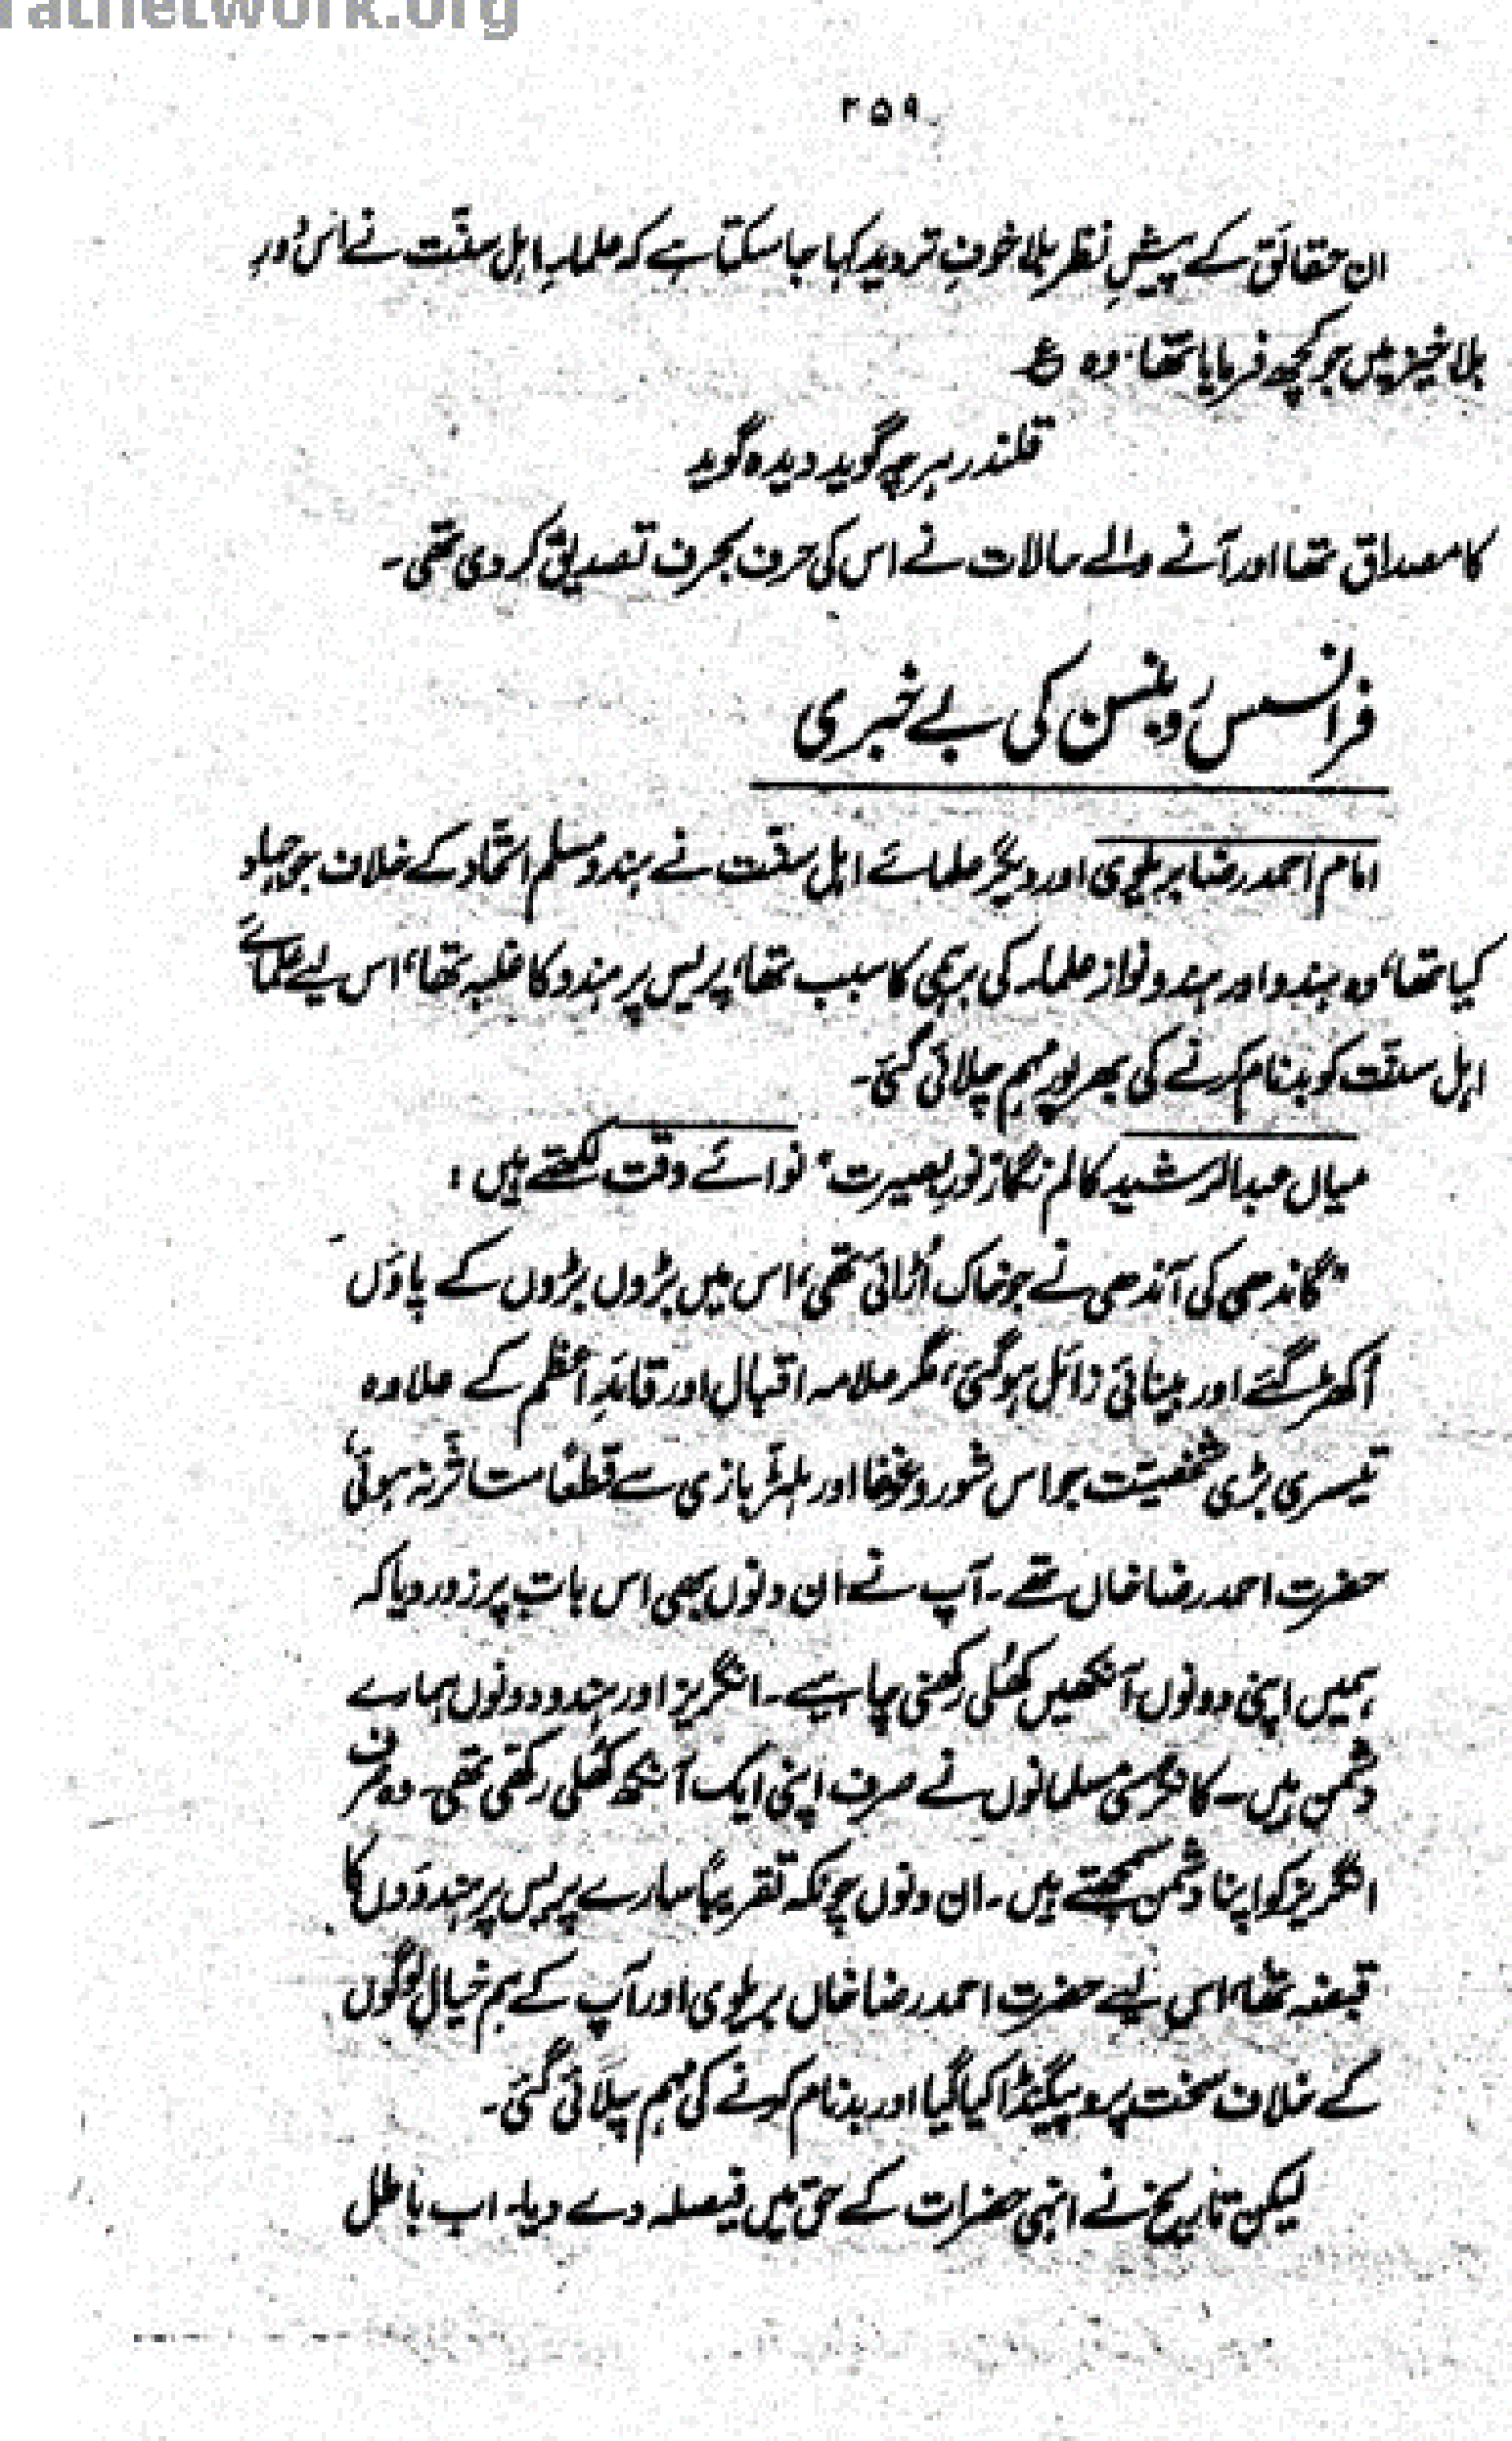 ratnetwork.org
۲۵۹
ان حقائق کے پیشِ نظر بلا خوفِ تردید کہا جا سکتا ہے کہ علماءِ اہل سنّت نے اس دورِ
بلا خیز میں جو کچھ فرمایا تھا، وہ ع
قلندر ہرچہ گوید دیدہ گوید
کا مصداق تھا اور آنے والے حالات نے اس کی حرف بحرف تصدیق کر دی تھی۔
فرانسس روبنسن کی بے خبری
امام احمد رضا بریلوی اور دیگر علمائے اہل سنّت نے ہندو مسلم اتحاد کے خلاف جو جہاد
کیا تھا، وہ ہندو اور ہندو نواز علماء کی برہمی کا سبب تھا، پریس پر ہندو کا غلبہ تھا، اس لیے علمائے
اہل سنّت کو بدنام کرنے کی بھرپور مہم چلائی گئی۔
میاں عبدالرشید کالم نگار نورِ بصیرت، نوائے وقت لکھتے ہیں:
"گاندھی کی آندھی نے جو خاک اُڑائی تھی، اس میں بڑوں بڑوں کے پاؤں
اُکھڑ گئے اور بینائی زائل ہوگئی، مگر علامہ اقبال اور قائدِ اعظم کے علاوہ
تیسری بڑی شخصیّت جو اس شور و غوغا اور ہلڑ بازی سے قطعًا متاثر نہ ہوئی
حضرت احمد رضا خاں تھے۔ آپ نے ان دنوں بھی اس بات پر زور دیا کہ
ہمیں اپنی دونوں آنکھیں کھُلی رکھنی چاہییے۔ انگریز اور ہندو دونوں ہمارے
دشمن ہیں۔ کانگرسی مسلمانوں نے صرف اپنی ایک آنکھ کھُلی رکھی تھی۔ وہ صرف
انگریز کو اپنا دشمن سمجھتے ہیں۔ ان دنوں چونکہ تقریبًا سارے پریس پر ہندوؤں کا
قبضہ تھا، اسی لیے حضرت احمد رضا خاں بریلوی اور آپ کے ہم خیال لوگوں
کے خلاف سخت پروپیگنڈا کیا گیا اور بدنام کرنے کی مہم چلائی گئی۔
لیکن تاریخ نے انہی حضرات کے حق میں فیصلہ دے دیا۔ اب باطل